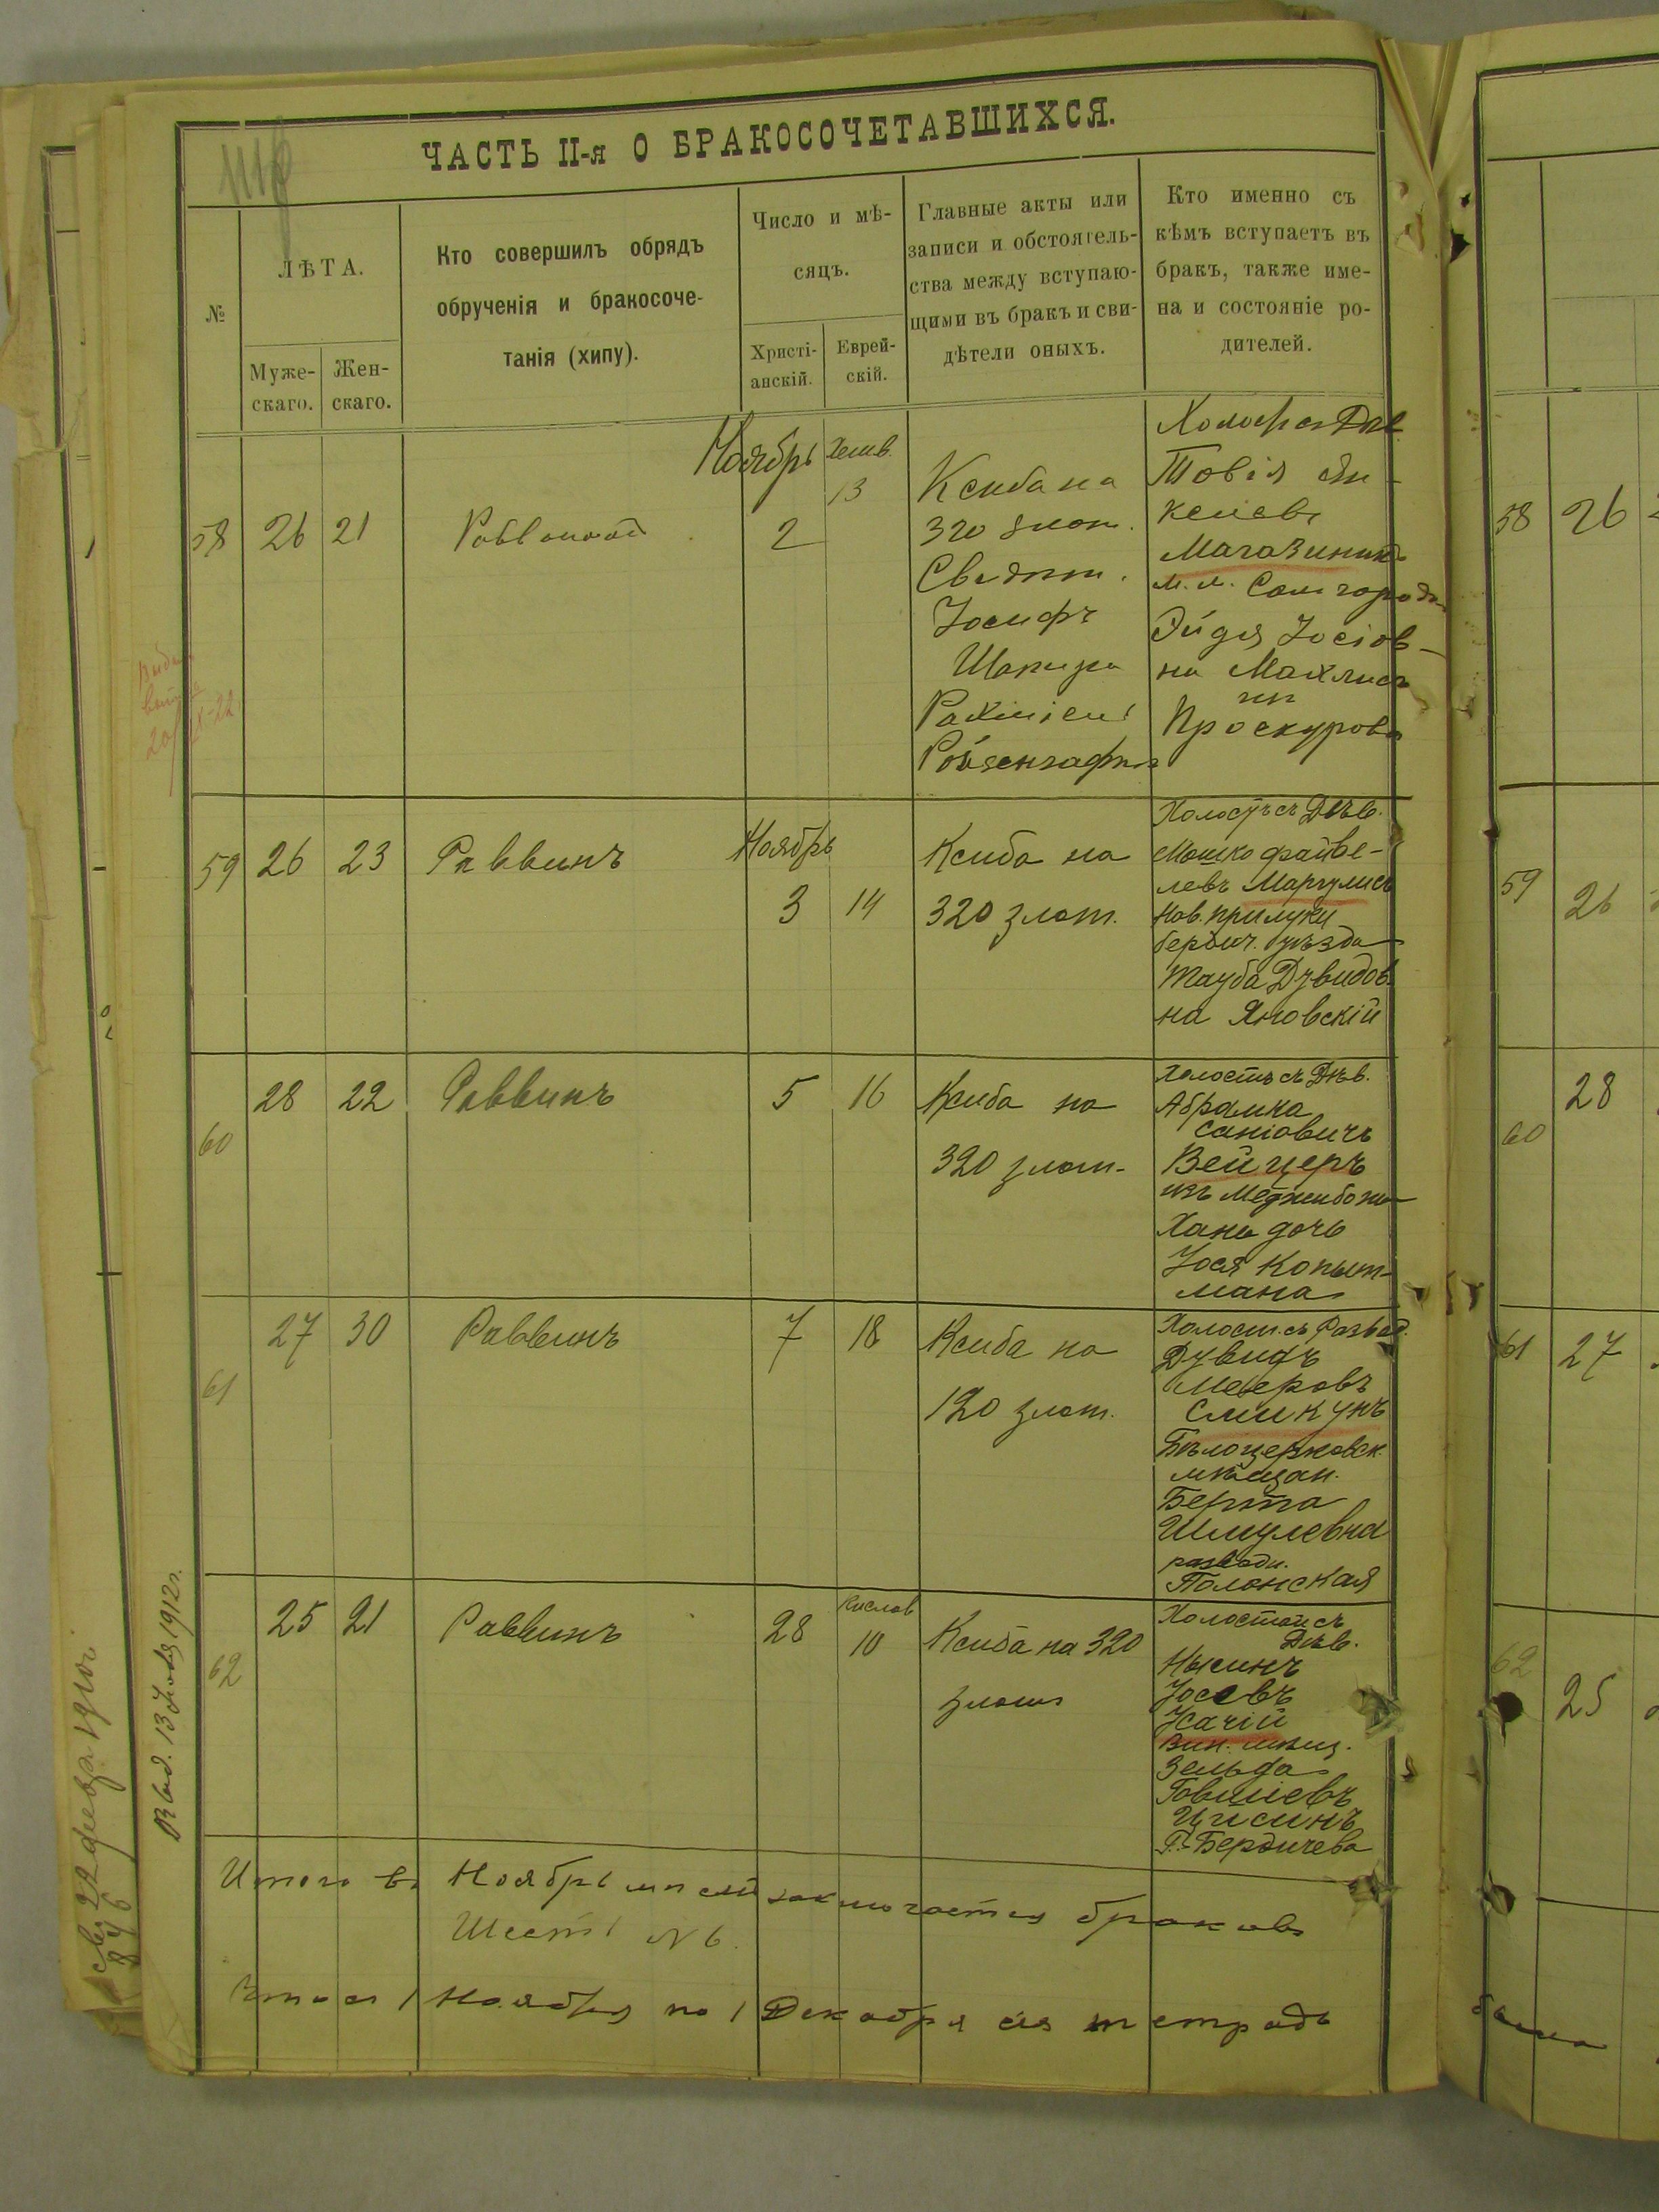 ЧАСТЬ II-я О БРАКОСОЧЕТАВШИХСЯ.
№
ЛѢТА.
Муже-
скаго.
Жен-
скаго.
Кто совершилъ обрядъ
обрученія и бракосоче-
танія (хипу).
Число и мѣ-
сяцъ.
Христі-
анскій.
Еврей-
скій.
Главные акты или
записи и обстоятель-
ства между вступаю-
щими въ бракъ и сви-
дѣтели оныхъ.
Кто именно съ
кѣмъ вступаетъ въ
бракъ, также име-
на и состояніе ро-
дителей.
58 26 21
Ноябрь
2
Хешв.
13
Ксиба на
320 злот.
Свидѣт.
Іосифъ
Шапира
Товія Ян-
келевъ
Магазиникъ
Самгородка
Эйдя Іосіов-
на Махлисъ
Проскурова
59 26 23 Раввинъ
Ноябрь
3 14
Ксиба на
320 злот.
Холостъ съ Дѣв.
Мошко Файве-
левъ Маргулисъ
Нов. Прилуки
Бердич. уѣзда
Тауба Дувидов
на Яновскій
60 28 22 Раввинъ 5 16
Ксиба на
320 злот.
Холостъ съ Дѣв.
Абрамка
Саніовичъ
Вейцеръ
изъ Меджибожа
Хана дочь
Іося Копыт-
мана
61 27 30 Раввинъ 7 18
Ксиба на
120 злот.
Холост. съ Развед.
Дувидъ
Мееровъ
Сликунъ
Бѣлоцерковск.
мѣщан.
Берта
Шмулевна
разводн.
Полонская
62 25 21 Раввинъ 28
Кислев
10
Ксиба на 320
злот
Холостой съ
Дѣв.
Нысинъ
Іосевъ
Вин. мѣщ.
Зельда
Г. Бердичева
Итого въ Ноябрь мѣсяц заключается браковъ
Шесть N 6.
1 Ноября по 1 Декабря сія тетрадь
Выд. 13 1912 г.
22 февр.
58 26
59 26
60 28
61 27
62 25